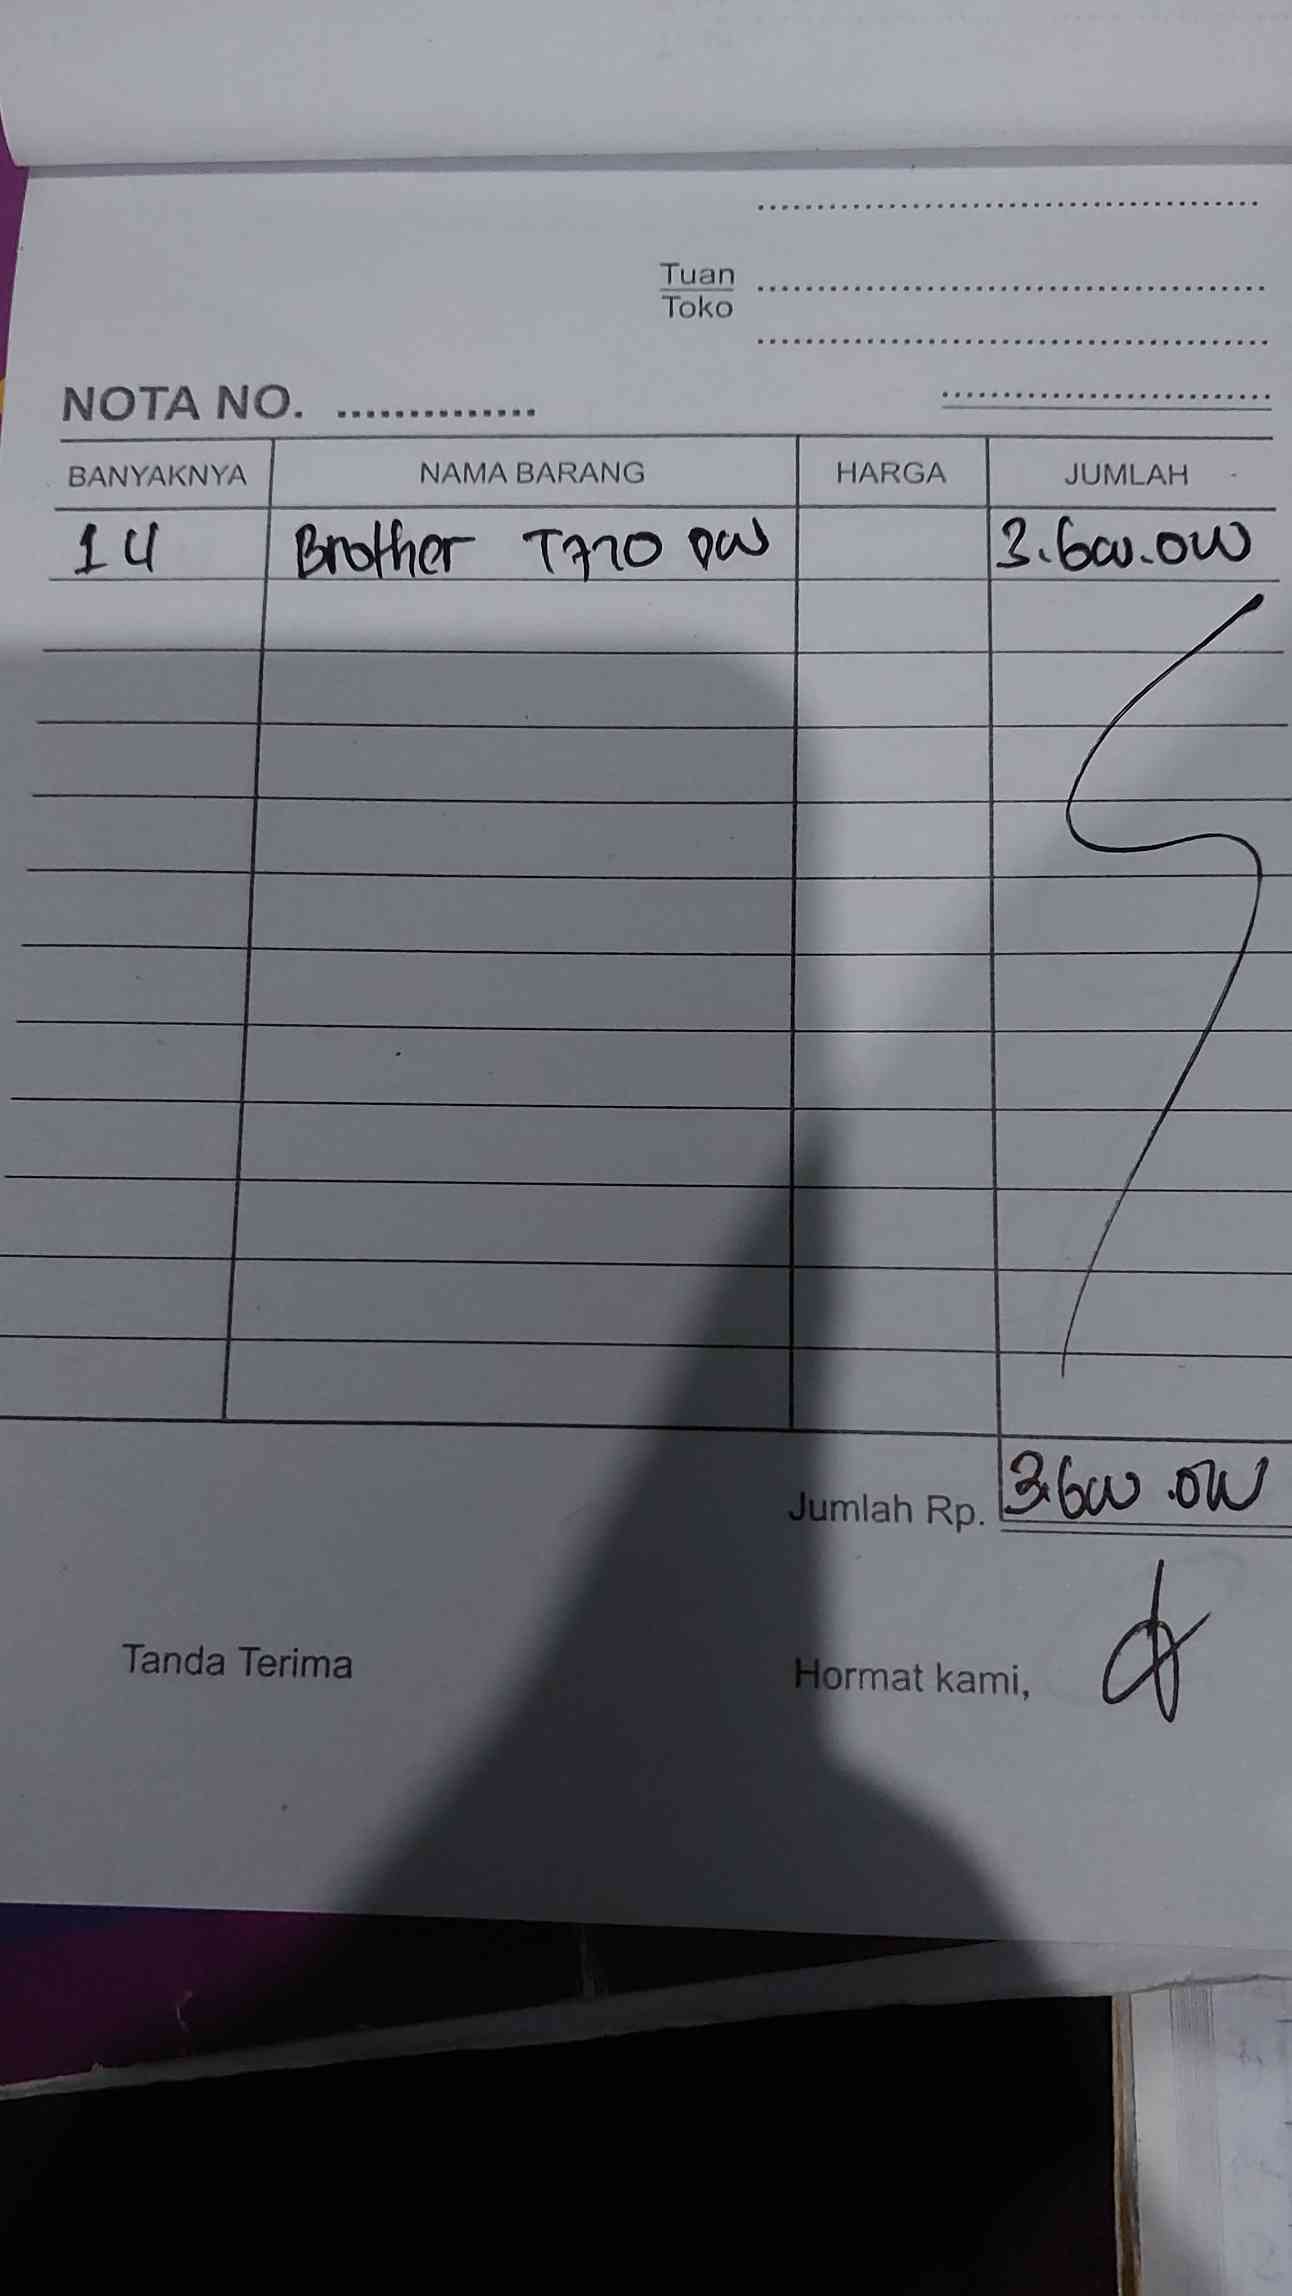 Tuan
Toko
NOTA NO.
BANYAKNYA NAMA BARANG HARGA JUMLAH
1 U Brother T720 DW 3.600.000
Jumlah Rp. 3.600.000
Tanda Terima Hormat kami,